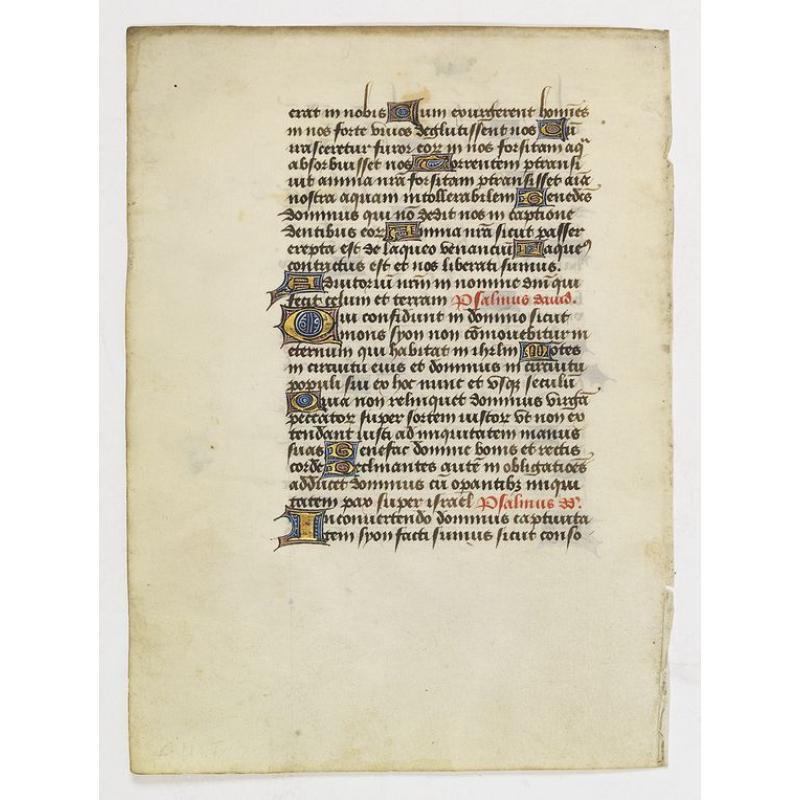 erat in nobis Cum exurgerent homines
in nos forte vivos deglutissent nos Cū
irasceretur furor eoꝝ in nos forsitam aqᵃ
absorbuisset nos Torrentem ptransi
uit anima nr̄a forsitam ptransisset aīa
nostra aquam intollerabilem Benedcs̄
dominus qui nō dedit nos in captione
dentibus eoꝝ Anima nr̄a sicut passer
erepta est de laqueo venanciū Laqueꝰ
contrictus est et nos liberati sumus.
Adiutoriū nr̄m in nomine dn̄i qui
fecit celum et terram Psalmus david.
Qui confidunt in domino sicut
mons syon non cōmovebitur in
eternum qui habitat in ihrlm Mōtes
in circuitu eius et dominus in circuitu
populi sui ex hoc nunc et vsqꝫ seculū
Quia non relinquet dominus virgā
peccatoꝝ super sortem iustoꝝ vt non ex
tendant iusti ad iniquitatem manus
suas Benefac domine bonis et rectis
corde Declinantes autē in obligatiōes
adducet dominus cū opantibꝫ iniqui
tatem pax super israel Psalmus dd.
In conuertendo dominus captiuita
tem syon facti sumus sicut conso